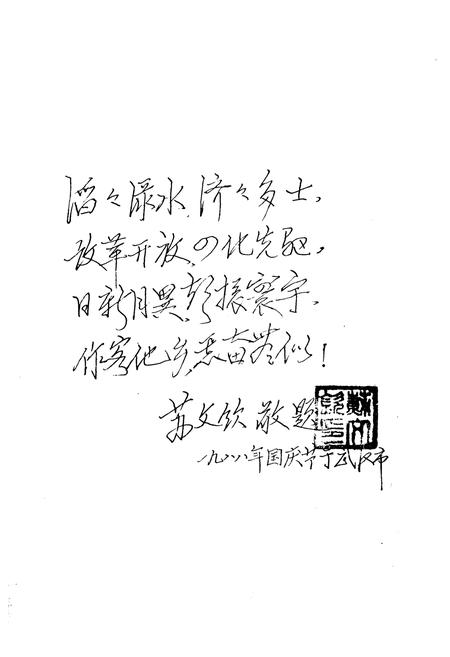 滔々渌水,济々多士,
改革开放,四化先驱,
日新月異,彰振寰宇,
作客他乡,悉奋
苏文钦敬题
一九八八年国庆节于武汉市
苏文钦